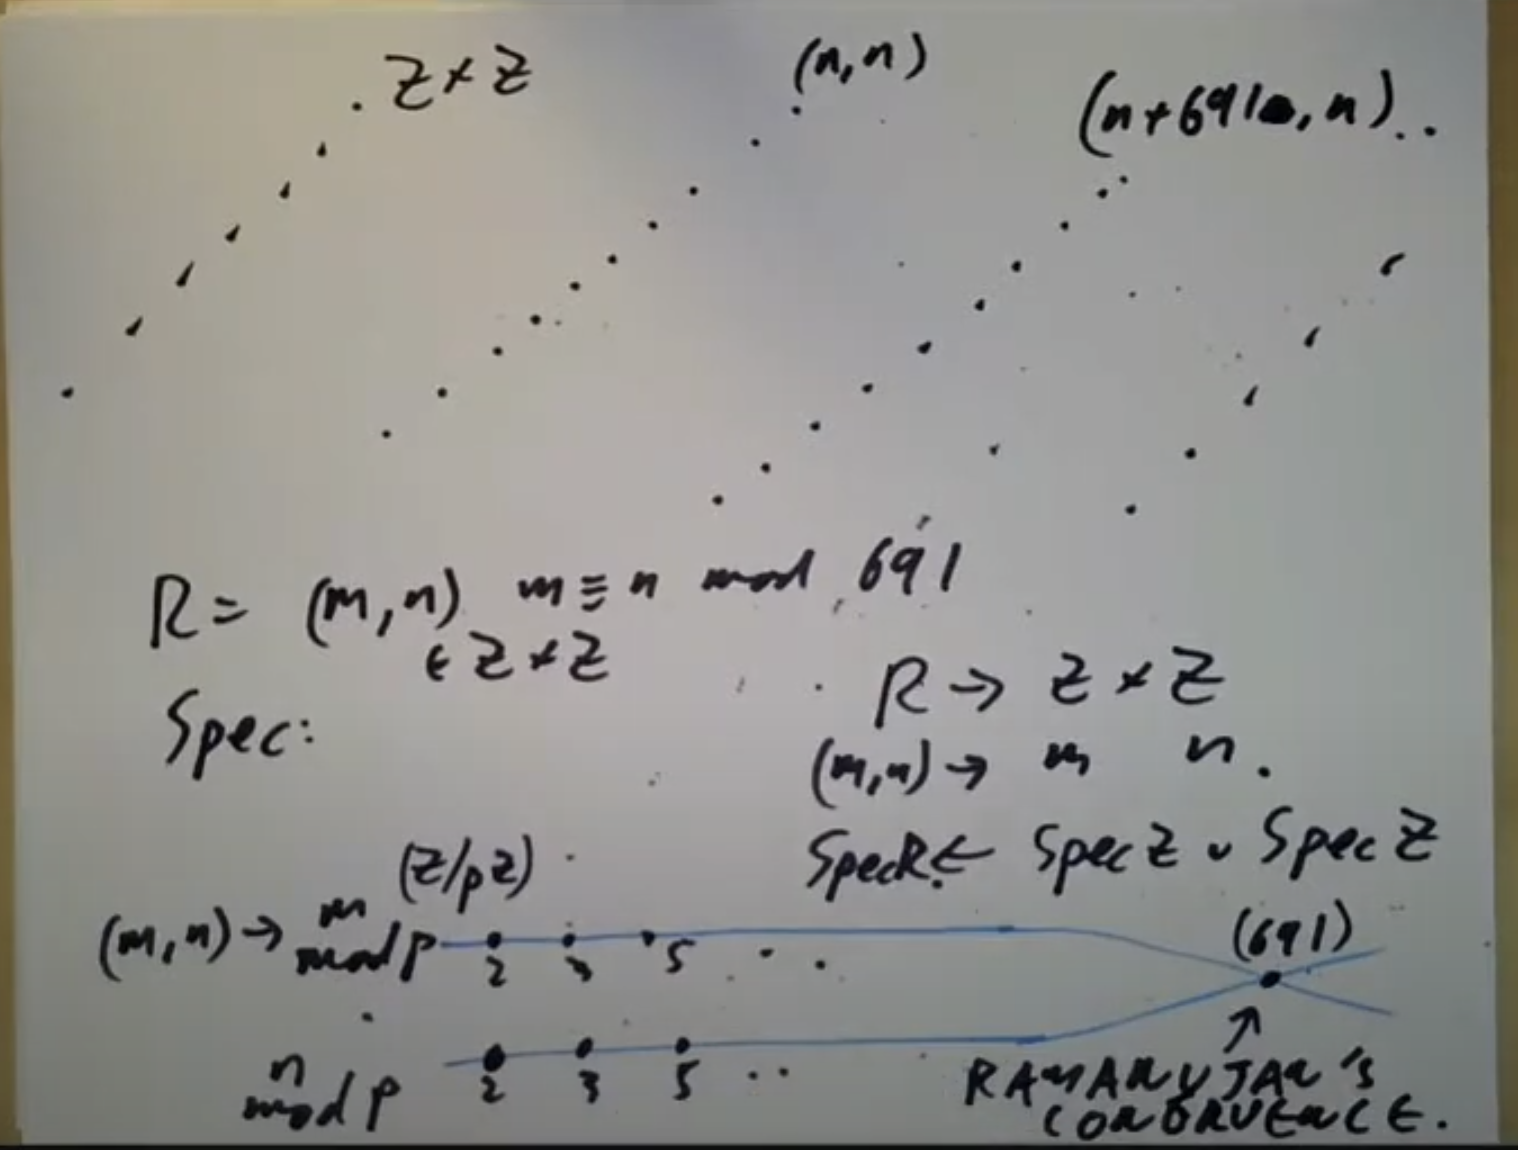 Z × Z
(n, n)
(n+691, n)..
R = (m, n) m ≡ n mod 691
∈ Z × Z
R → Z × Z
Spec:
(m, n) → m n.
Spec R ← Spec Z ∪ Spec Z
(Z/pZ)
(m, n) → m mod p
2 3 5 . .
(691)
n mod p
2 3 5 . .
RAMANUJAN'S
CONGRUENCE.